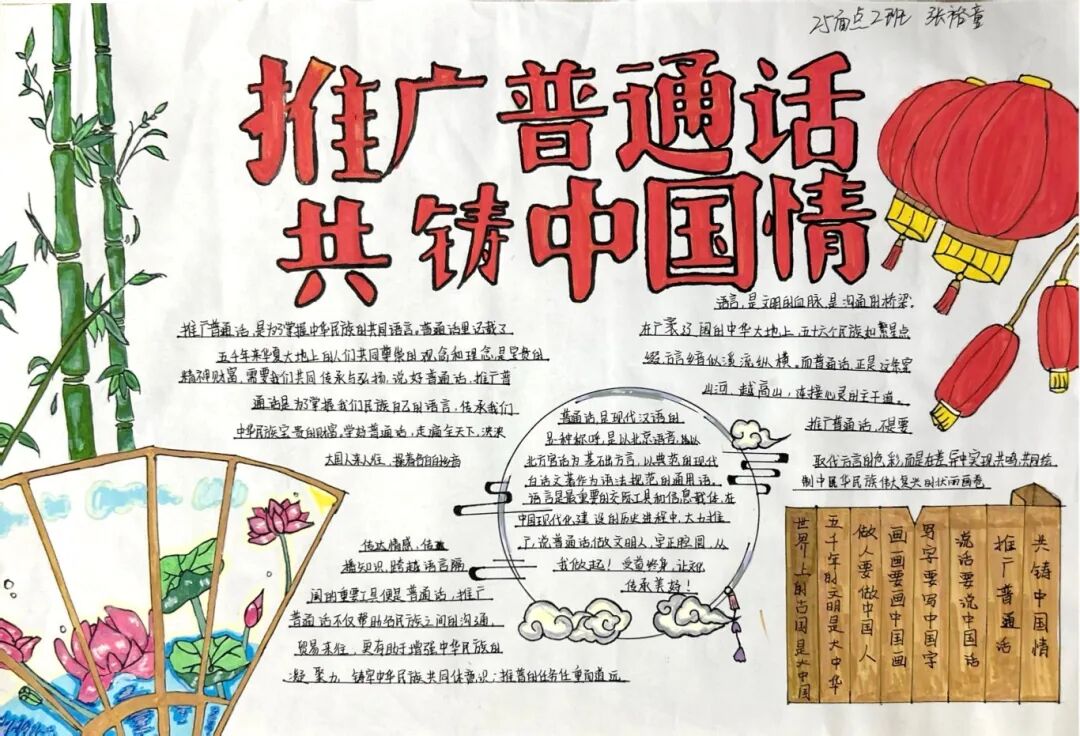 25届点2班 张裕童
推广普通话
共铸中国情
推广普通话,是为了掌握中华民族的共同语言。普通话里记载了
五千年来华夏大地上的人们共同尊崇的观念和理念,是宝贵的
精神财富,需要我们共同传承与弘扬,说好普通话,推广普
通话是为了掌握我们民族自己的语言,传承我们
中华民族宝贵的财富,学好普通话,走遍全天下,泱泱
大国人来人往,操着各自的乡音
语言,是文明的血脉,是沟通的桥梁;
在广袤辽阔的中华大地上,五十六个民族如繁星点
缀,方言乡音似溪流纵横。而普通话,正是这条穿
山河,越高山,连接心灵的主干道。
推广普通话,不是要
取代方言的色彩,而是在差异中实现共鸣,共同绘
制中华民族伟大复兴的壮丽画卷
普通话,是现代汉语的
另一种称呼,是以北京语音,
北方官话为基础方言,以典范的现代
白话文著作为语法规范的通用语。
语言是最重要的交际工具和信息载体,在
中国现代化建设的历史进程中,大力推
广,说普通话做文明人,字正腔圆,从
我做起!受益终身,让
传承美好!
传达情感,传
播知识,跨越语言隔
阂的重要工具便是普通话,推广
普通话不仅帮助各民族之间的沟通,
贸易来往,更有助于增强中华民族的
凝聚力,铸牢中华民族共同体意识;推普的任务任重而道远
共铸中国情
推广普通话
说话要说中国话
写字要写中国字
画画要画中国画
做人要做中国人
五千年的文明是大中华
世界上的古国是大中国